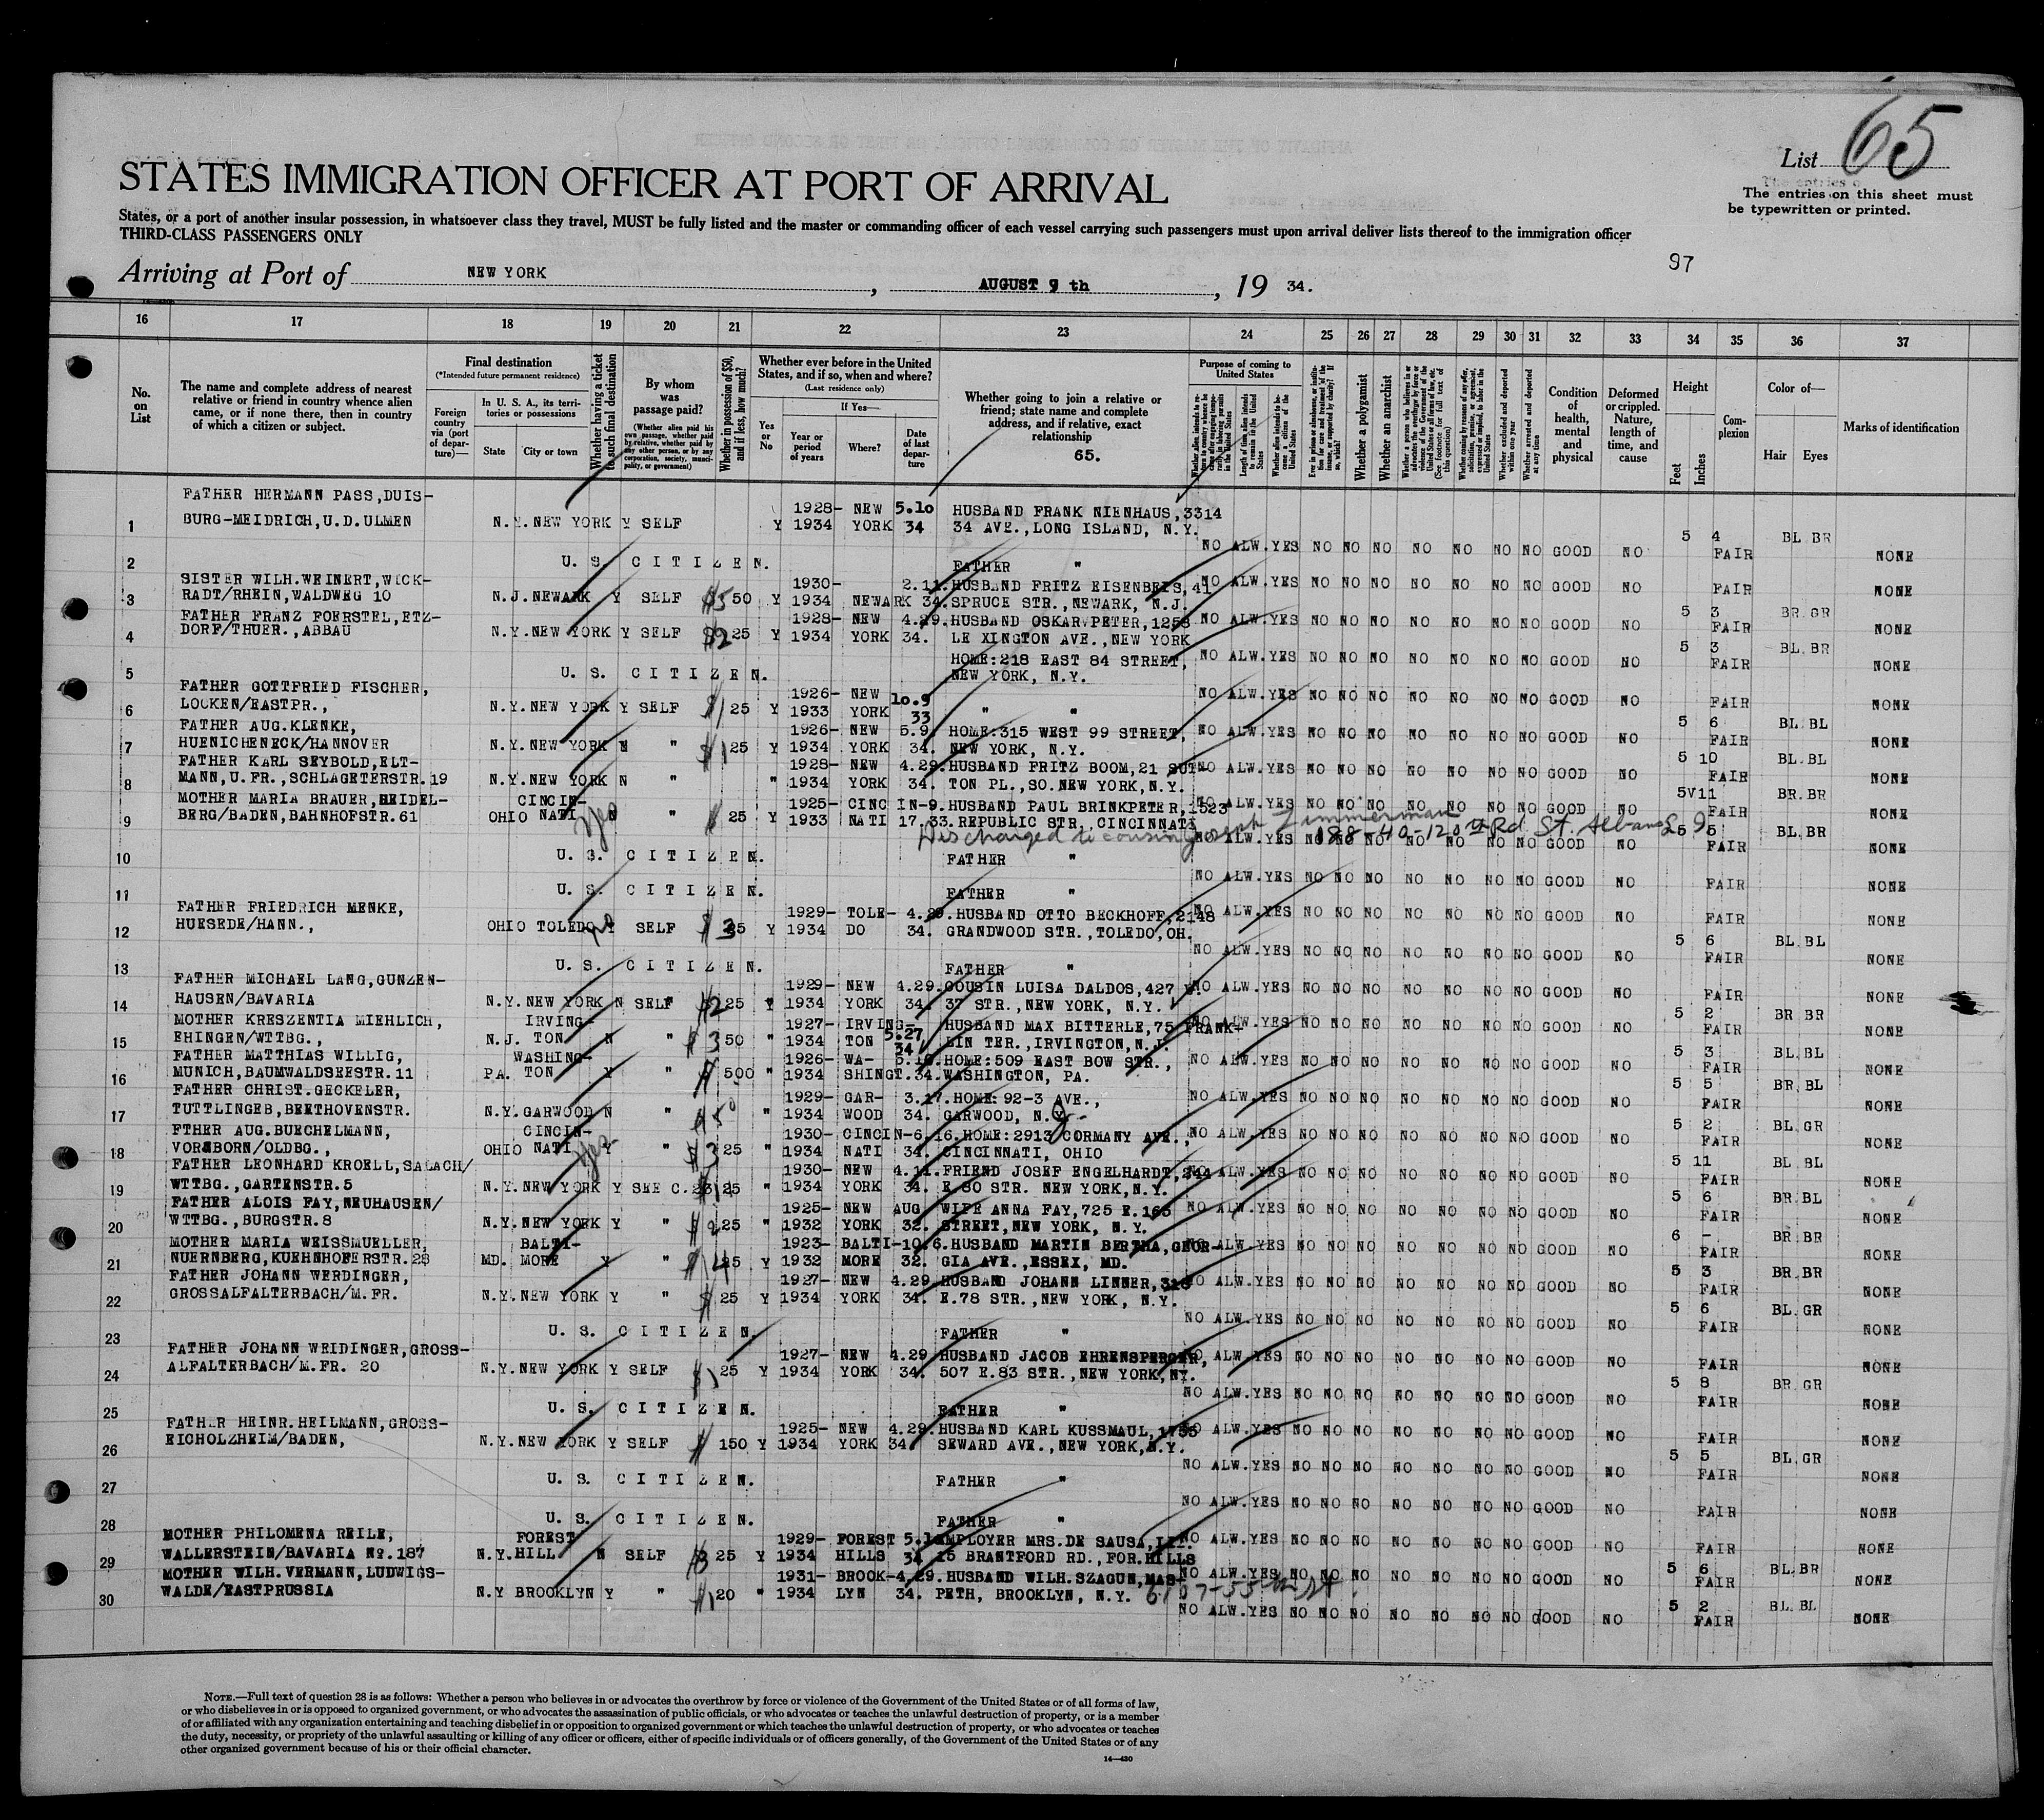 65
List
The entries on this sheet must
be typewritten or printed.
STATES IMMIGRATION OFFICER AT PORT OF ARRIVAL
States, or a port of another insular possession, in whatsoever class they travel, MUST be fully listed and the master or commanding officer of each vessel carrying such passengers must upon arrival deliver lists thereof to the immigration officer
THIRD-CLASS PASSENGERS ONLY
97
Arriving at Port of NEW YORK, AUGUST 9 th, 19 34.
16 17 18 19 20 21 22 23 24 25 26 27 28 29 30 31 32 33 34 35 36 37
No. on List
The name and complete address of nearest relative or friend in country whence alien came, or if none there, then in country of which a citizen or subject.
Final destination
(*Intended future permanent residence)
Foreign country via (port of departure)—
In U. S. A., its territories or possessions
State
City or town
Whether having a ticket to such final destination
By whom was passage paid?
(Whether alien paid his own passage, whether paid by relative, whether paid by any other person, or by any corporation, society, municipality, or government)
Whether in possession of $50, and if less, how much?
Whether ever before in the United States, and if so, when and where?
(Last residence only)
Yes or No
If Yes—
Year or period of years
Where?
Date of last departure
Whether going to join a relative or friend; state name and complete address, and if relative, exact relationship
65.
Purpose of coming to United States
Whether a polygamist
Whether an anarchist
Condition of health, mental and physical
Deformed or crippled. Nature, length of time, and cause
Height
Feet Inches
Complexion
Color of—
Hair Eyes
Marks of identification
FATHER HERMANN PASS,DUIS- 1928- NEW 5.10 HUSBAND FRANK NIENHAUS,3314
1 BURG-MEIDRICH,U.D.ULMEN N.Y.NEW YORK Y SELF Y 1934 YORK 34 34 AVE.,LONG ISLAND, N.Y.
NO ALW.YES NO NO NO NO NO NO NO GOOD NO 5 4 FAIR BL BR NONE
2 U. S. CITIZEN. FATHER "
NO ALW.YES NO NO NO NO NO NO NO GOOD NO FAIR NONE
SISTER WILH.WEINERT,WICK- 1930- 2.11. HUSBAND FRITZ EISENBEIS,41
3 RADT/RHEIN,WALDWEG 10 N.J.NEWARK Y SELF 50 Y 1934 NEWARK 34. SPRUCE STR.,NEWARK, N.J.
NO ALW.YES NO NO NO NO NO NO NO GOOD NO 5 3 FAIR BR.GR NONE
FATHER FRANZ FOERSTEL,ETZ- 1928- NEW 4.29. HUSBAND OSKAR PETER,1258
4 DORF/THUER.,ABBAU N.Y.NEW YORK Y SELF 25 Y 1934 YORK 34. LE XINGTON AVE.,NEW YORK
NO ALW.YES NO NO NO NO NO NO NO GOOD NO 5 3 FAIR BL.BR NONE
HOME:218 EAST 84 STREET,
5 U. S. CITIZEN. NEW YORK, N.Y.
NO ALW.YES NO NO NO NO NO NO NO GOOD NO FAIR NONE
FATHER GOTTFRIED FISCHER, 1926- NEW 10.9
6 LOCKEN/EASTPR., N.Y.NEW YORK Y SELF 25 Y 1933 YORK 33 " "
NO ALW.YES NO NO NO NO NO NO NO GOOD NO 5 6 FAIR BL.BL NONE
FATHER AUG.KLENKE, 1926- NEW 5.9. HOME:315 WEST 99 STREET,
7 HUENICHENECK/HANNOVER N.Y.NEW YORK N " 25 Y 1934 YORK 34. NEW YORK, N.Y.
NO ALW.YES NO NO NO NO NO NO NO GOOD NO 5 10 FAIR BL.BL NONE
FATHER KARL SEYBOLD,ELT- 1928- NEW 4.29. HUSBAND FRITZ BOOM,21 SUT-
8 MANN,U.FR.,SCHLAGETERSTR.19 N.Y.NEW YORK N " " 1934 YORK 34. TON PL.,SO.NEW YORK,N.Y.
NO ALW.YES NO NO NO NO NO NO NO GOOD NO 5 11 FAIR BR.BR NONE
MOTHER MARIA BRAUER,HEIDEL- CINCIN- 1925- CINC IN-9. HUSBAND PAUL BRINKPETER,1523
9 BERG/BADEN,BAHNHOFSTR.61 OHIO NATI yes N " 25 Y 1933 NATI 17.33. REPUBLIC STR, CINCINNATI
Discharged to cousin Joseph Zimmerman 188-40-120th Rd St. Albans L.I.
NO ALW.YES NO NO NO NO NO NO NO GOOD NO 5 5 FAIR BL.BR NONE
10 U. S. CITIZEN. FATHER "
NO ALW.YES NO NO NO NO NO NO NO GOOD NO FAIR NONE
11 U. S. CITIZEN. FATHER "
NO ALW.YES NO NO NO NO NO NO NO GOOD NO FAIR NONE
FATHER FRIEDRICH MENKE, 1929- TOLE- 4.29. HUSBAND OTTO BECKHOFF,2148
12 HUESEDE/HANN., OHIO TOLEDO Y SELF 25 Y 1934 DO 34. GRANDWOOD STR.,TOLEDO,OH.
NO ALW.YES NO NO NO NO NO NO NO GOOD NO 5 6 FAIR BL.BL NONE
13 U. S. CITIZEN. FATHER "
NO ALW.YES NO NO NO NO NO NO NO GOOD NO FAIR NONE
FATHER MICHAEL LANG,GUNZEN- 1929- NEW 4.29. COUSIN LUISA DALDOS,427
14 HAUSEN/BAVARIA N.Y.NEW YORK N SELF 25 Y 1934 YORK 34. 37 STR.,NEW YORK, N.Y.
NO ALW.YES NO NO NO NO NO NO NO GOOD NO 5 2 FAIR BR BR NONE
MOTHER KRESZENTIA MIEHLICH, IRVING- 1927- IRVING- 5.27 HUSBAND MAX BITTERLE,75 FRANK-
15 EHINGEN/WTTBG., N.J. TON N " 50 " 1934 TON 34 LIN TER.,IRVINGTON,N.J.
NO ALW.YES NO NO NO NO NO NO NO GOOD NO 5 3 FAIR BL.BL NONE
FATHER MATTHIAS WILLIG, WASHING- 1926- WA- HOME:509 EAST BOW STR.,
16 MUNICH,BAUMWALDSEESTR.11 PA. TON Y " 500 " 1934 SHINGT.34. WASHINGTON, PA.
NO ALW.YES NO NO NO NO NO NO NO GOOD NO 5 5 FAIR BR.BL NONE
FATHER CHRIST.GECKELER, 1929- GAR- 3.17. HOME:92-3 AVE.,
17 TUTTLINGEB,BEETHOVENSTR. N.Y.GARWOOD N " 50 " 1934 WOOD 34. GARWOOD, N.Y. J-
NO ALW.YES NO NO NO NO NO NO NO GOOD NO 5 2 FAIR BL.GR NONE
FTHER AUG.BUECHELMANN, CINCIN- 1930- CINCIN-6.16. HOME:2913 CORMANY AVE.,
18 VORNBORN/OLDBG., OHIO NATI yes Y " 25 " 1934 NATI 34. CINCINNATI, OHIO
NO ALW.YES NO NO NO NO NO NO NO GOOD NO 5 11 FAIR BL BL NONE
FATHER LEONHARD KROELL,SALACH/ 1930- NEW 4.11. FRIEND JOSEF ENGELHARDT,244
19 WTTBG.,GARTENSTR.5 N.Y.NEW YORK Y SEE C.23 25 " 1934 YORK 34. E 80 STR. NEW YORK,N.Y.
NO ALW.YES NO NO NO NO NO NO NO GOOD NO 5 6 FAIR BR.BL NONE
FATHER ALOIS FAY,NEUHAUSEN/ 1925- NEW AUG WIFE ANNA FAY,725 E.165
20 WTTBG.,BURGSTR.8 N.Y.NEW YORK Y " 25 " 1932 YORK 32. STREET,NEW YORK, N.Y.
NO ALW.YES NO NO NO NO NO NO NO GOOD NO 6 - FAIR BR.BR NONE
MOTHER MARIA WEISSMUELLER, BALTI- 1923- BALTI-10.6. HUSBAND MARTIN BERTHA,GEOR-
21 NUERNBERG,KUEHNHOFERSTR.28 MD. MORE Y " 25 Y 1932 MORE 32. GIA AVE.,ESSEX, MD.
NO ALW.YES NO NO NO NO NO NO NO GOOD NO 5 3 FAIR BR.BR NONE
FATHER JOHANN WERDINGER, 1927- NEW 4.29. HUSBAND JOHANN LINNER,318
22 GROSSALFALTERBACH/M.FR. N.Y.NEW YORK Y " 25 Y 1934 YORK 34. E.78 STR.,NEW YORK, N.Y.
NO ALW.YES NO NO NO NO NO NO NO GOOD NO 5 6 FAIR BL.GR NONE
23 U. S. CITIZEN. FATHER "
NO ALW.YES NO NO NO NO NO NO NO GOOD NO FAIR NONE
FATHER JOHANN WEIDINGER,GROSS- 1927- NEW 4.29 HUSBAND JACOB EHRENSPERGER,
24 ALFALTERBACH/M.FR. 20 N.Y.NEW YORK Y SELF 25 Y 1934 YORK 34. 507 E.83 STR.,NEW YORK,NY.
NO ALW.YES NO NO NO NO NO NO NO GOOD NO 5 8 FAIR BR.GR NONE
25 U. S. CITIZEN. FATHER "
NO ALW.YES NO NO NO NO NO NO NO GOOD NO FAIR NONE
FATHER HEINR.HEILMANN,GROSS- 1925- NEW 4.29. HUSBAND KARL KUSSMAUL,1755
26 EICHOLZHEIM/BADEN, N.Y.NEW YORK Y SELF 150 Y 1934 YORK 34. SEWARD AVE.,NEW YORK,N.Y.
NO ALW.YES NO NO NO NO NO NO NO GOOD NO 5 5 FAIR BL.GR NONE
27 U. S. CITIZEN. FATHER "
NO ALW.YES NO NO NO NO NO NO NO GOOD NO FAIR NONE
28 U. S. CITIZEN. FATHER "
NO ALW.YES NO NO NO NO NO NO NO GOOD NO FAIR NONE
MOTHER PHILOMENA REILE, FOREST 1929- FOREST EMPLOYER MRS.DE SAUSA,
29 WALLERSTEIN/BAVARIA No.187 N.Y.HILL N SELF 25 Y 1934 HILLS 34 15 BRANTFORD RD.,FOR.HILLS
NO ALW.YES NO NO NO NO NO NO NO GOOD NO 5 6 FAIR BL.BR NONE
MOTHER WILH.VERMANN,LUDWIGS- 1931- BROOK-4.29. HUSBAND WILH.SZAGUN,MAS-
30 WALDE/EASTPRUSSIA N.Y BROOKLYN Y " 20 " 1934 LYN 34. PETH, BROOKLYN, N.Y. 6107-55th St.
NO ALW.YES NO NO NO NO NO NO NO GOOD NO 5 2 FAIR BL.BL NONE
NOTE.—Full text of question 28 is as follows: Whether a person who believes in or advocates the overthrow by force or violence of the Government of the United States or of all forms of law,
or who disbelieves in or is opposed to organized government, or who advocates the assassination of public officials, or who advocates or teaches the unlawful destruction of property, or is a member
of or affiliated with any organization entertaining and teaching disbelief in or opposition to organized government or which teaches the unlawful destruction of property, or who advocates or teaches
the duty, necessity, or propriety of the unlawful assaulting or killing of any officer or officers, either of specific individuals or of officers generally, of the Government of the United States or of any
other organized government because of his or their official character.
14—430